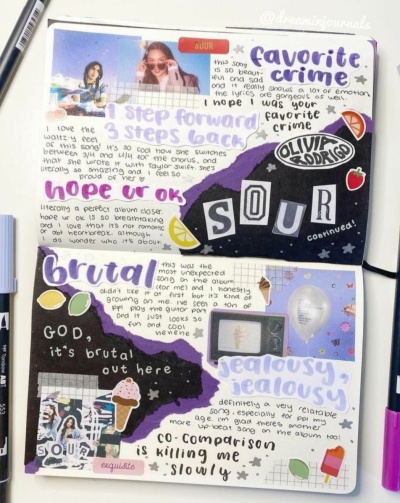 @dreaminjournals
sOUR
favorite
crime
this song
is so beaut-
iful and sad
and it really shows a lot of emotion.
the lyrics are gorgeous as well.
I hope I was your
favorite
crime
1 step forward
3 steps back
I love the
waltz-y feel
of this song! it's so cool how she switches
between 3/4 and 4/4 for the chorus, and
that she wrote it with taylor swift. she's
literally so amazing and i feel so
proud of her
OLIVIA
RODRIGO
SOUR
continued!
hope ur ok
literally a perfect album closer.
hope ur ok is so breathtaking
and I love that it's not romantic
or abt heartbreak. although
I do wonder who it's about.
brutal
this was the
most unexpected
song on the album
(for me) and I honestly
didn't like it at first but it's kind of
growing on me. i've seen a ton of
ppl play the guitar part
and it just looks so
fun and cool
hehehe
GOD,
it's brutal
out here
jealousy,
jealousy
definitely a very relatable
song, especially for ppl my
age. i'm glad there's another
more up-beat song on the album too!
co-comparison
is killing me
slowly
SOUR
exquisite
553